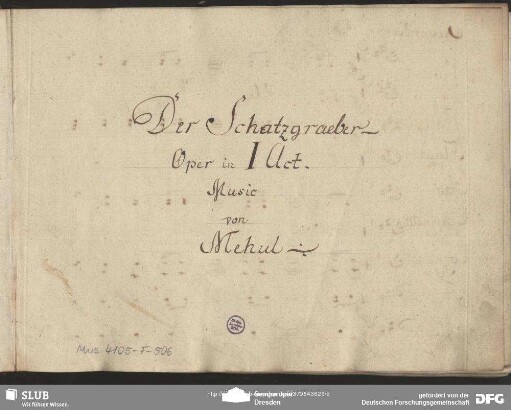 Der Schatzgraeber
Oper in I Act.
Music
von
Mehul
Mus. 4105-F-506
SLUB
Wir führen Wissen.
Dresden
gefördert von der
Deutschen Forschungsgemeinschaft
DFG